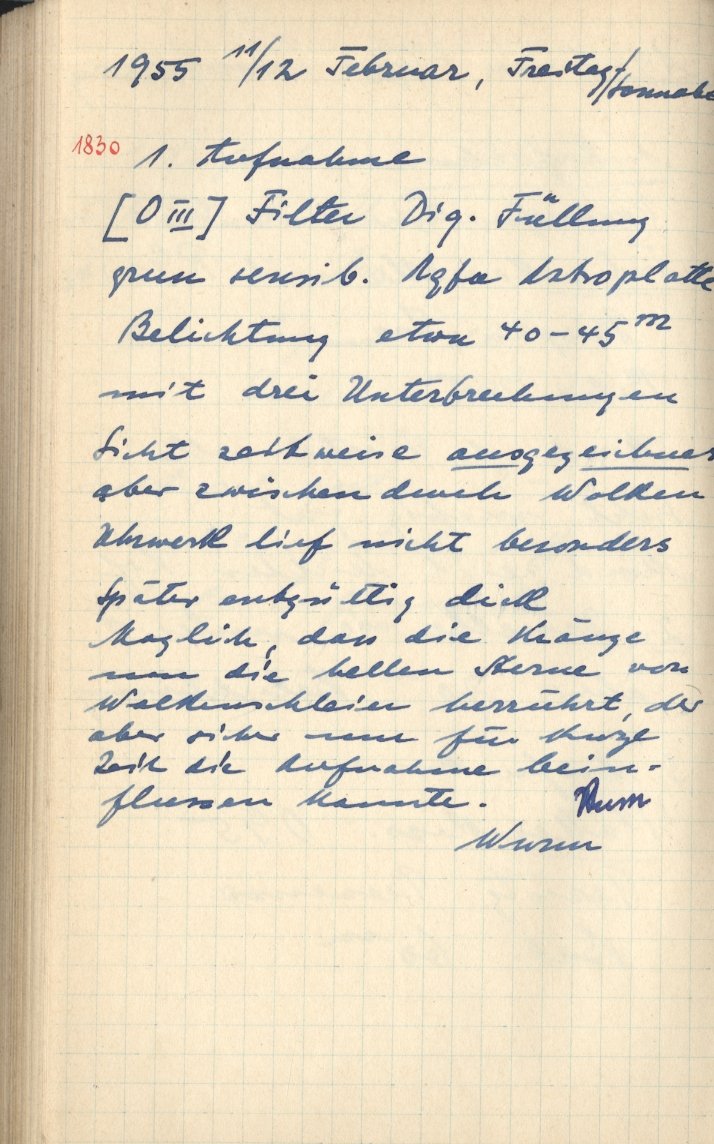 1955 11/12 Februar, Freitag/Sonnabe
1830 1. Aufnahme
[O III] Filter Dig. Füllung
grün sensib. Agfa Astroplatte
Belichtung etwa 40-45 m
mit drei Unterbrechungen
Sicht zeitweise ausgezeichnet
aber zwischendurch Wolken
Uhrwerk lief nicht besonders
Später entgültig dick
Möglich, dass die Kränze
um die hellen Sterne von
Wolkenschleier herrührt, der
aber sicher nur für kurze
Zeit die Aufnahme bein-
flussen konnte.
Wurm